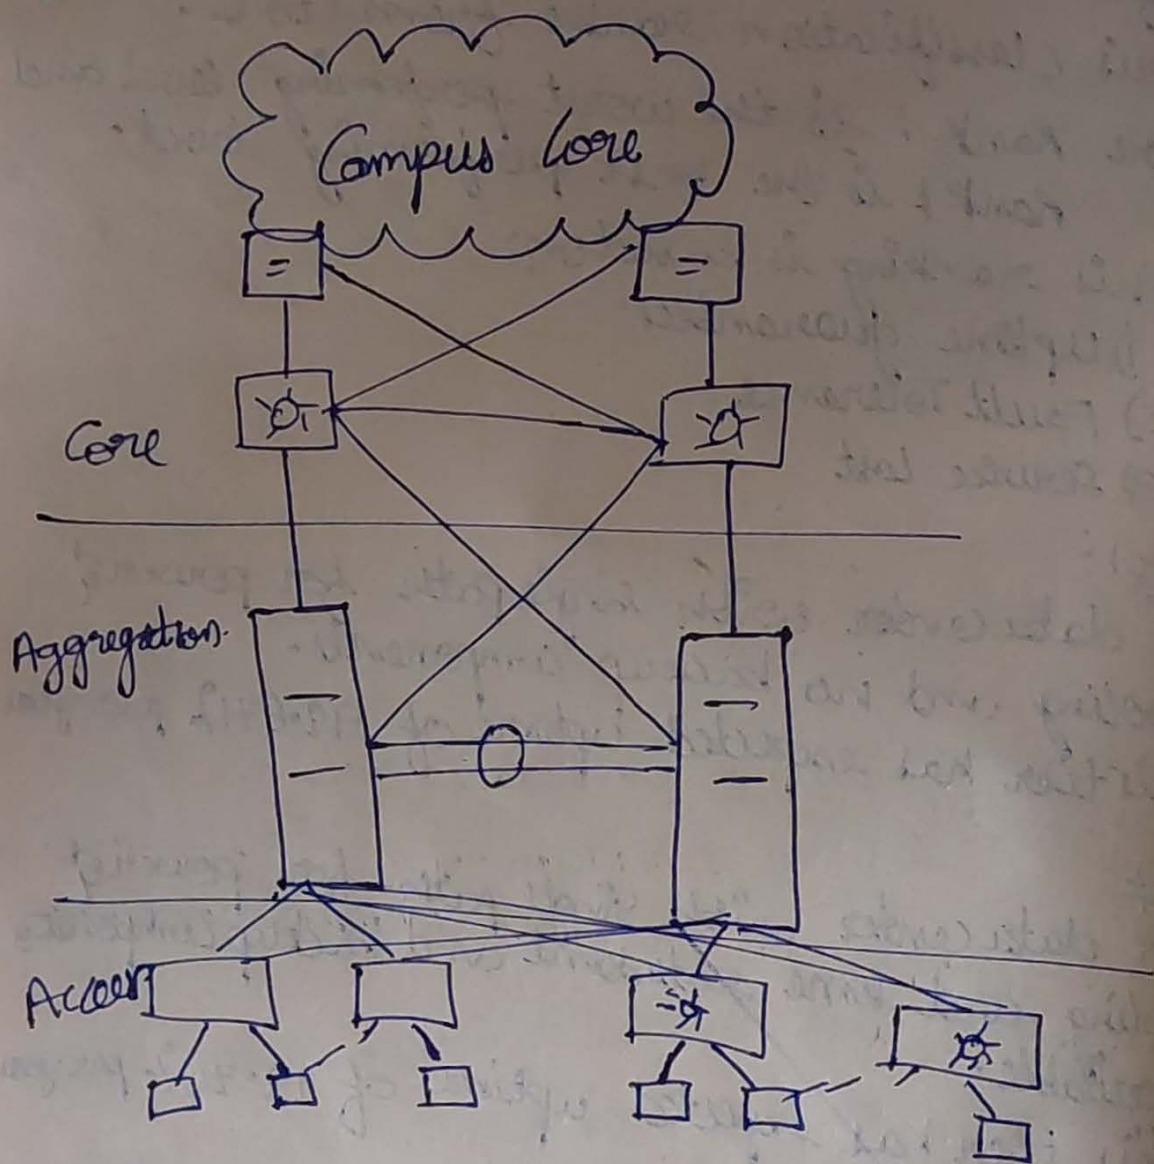 Campus Core
Core
Aggregation.
Access